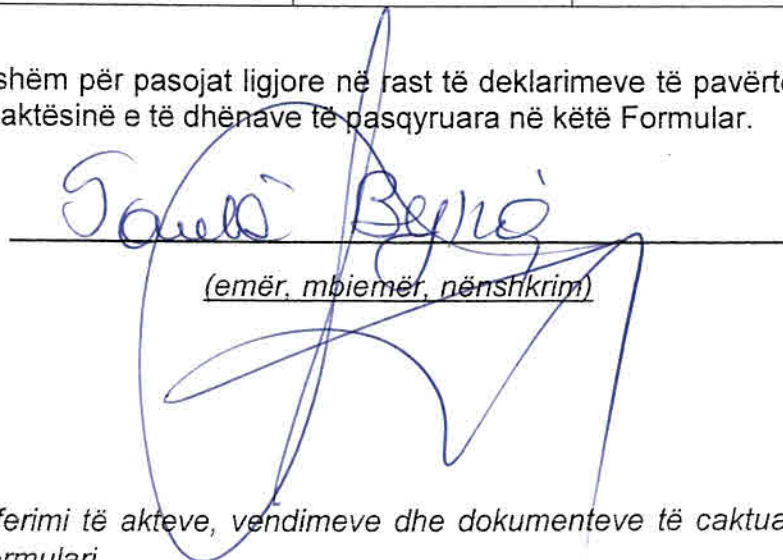 shëm për pasojat ligjore në rast të deklarimeve të pavërte
aktësinë e të dhënave të pasqyruara në këtë Formular.
(emër, mbiemër, nënshkrim)
ferimi të akteve, vendimeve dhe dokumenteve të caktua
ormulari